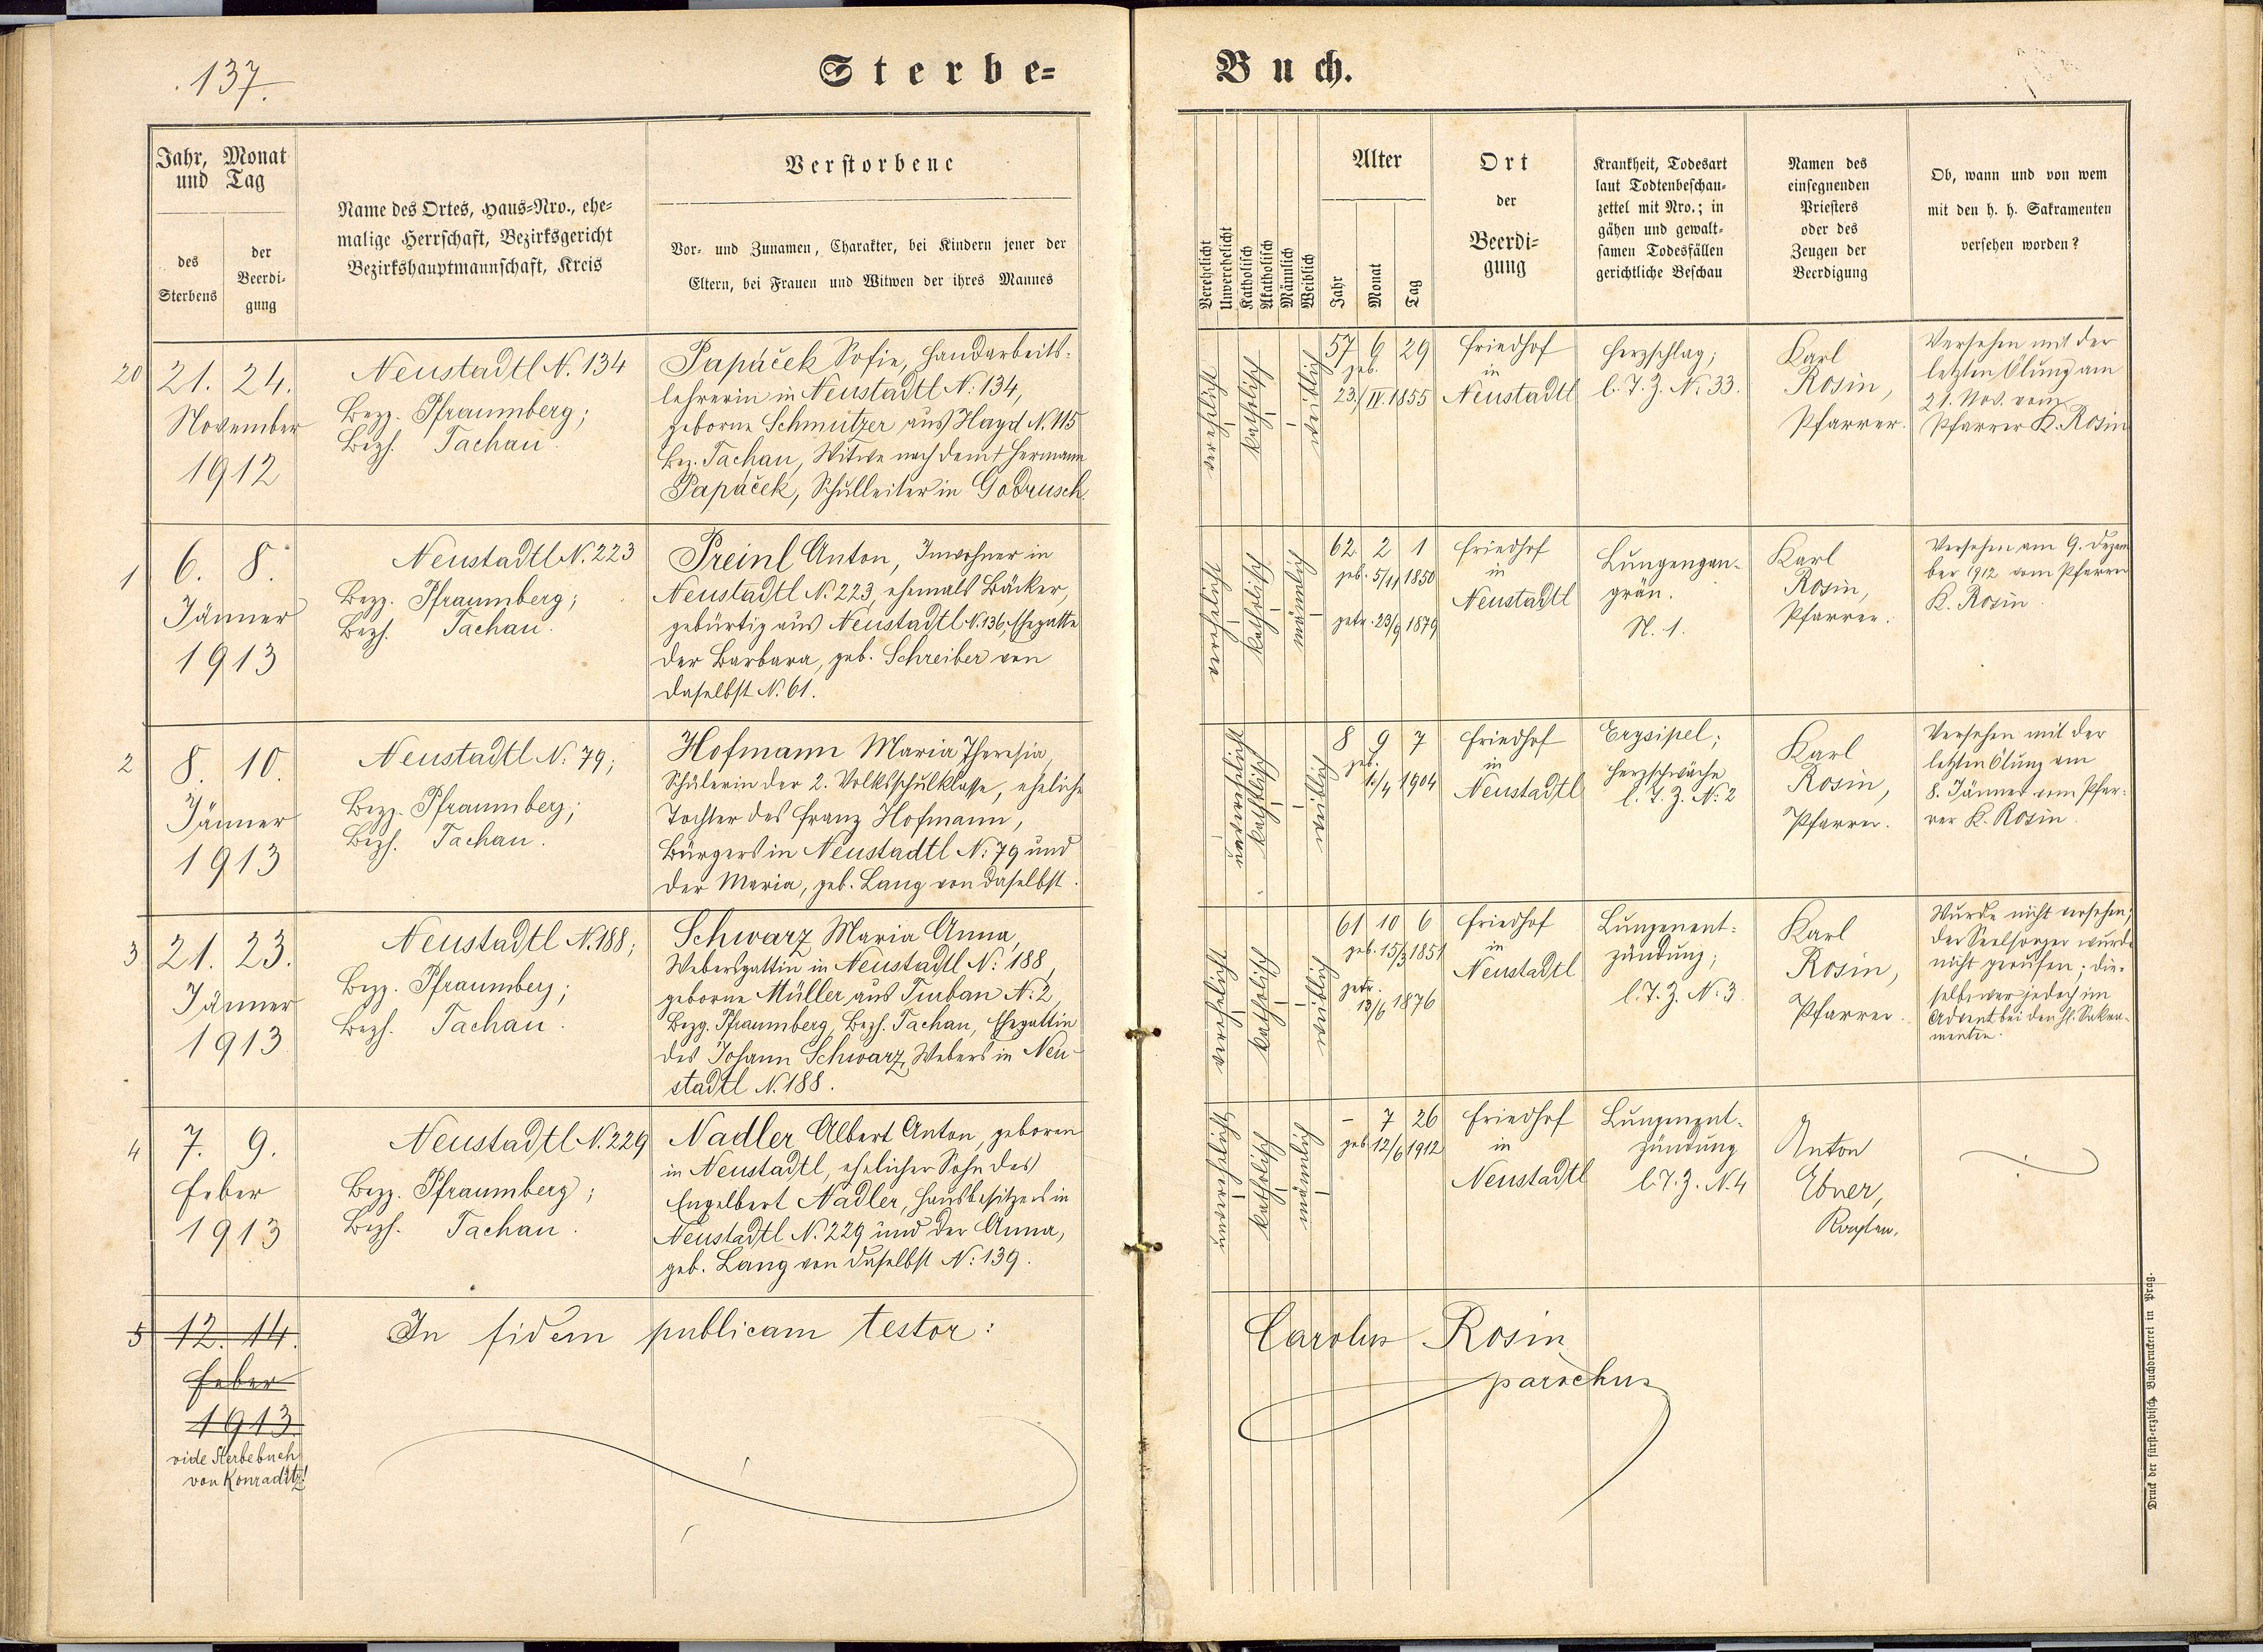 137.
Sterbe-
Buch.
Jahr, Monat
und Tag
des
Sterbens
der
Beerdi-
gung
Name des Ortes, Haus-Nro., ehe-
malige Herrschaft, Bezirksgericht
Bezirkshauptmannschaft, Kreis
Verstorbene
Vor- und Zunamen, Charakter, bei Kindern jener der
Eltern, bei Frauen und Witwen der ihres Mannes
Verehelicht
Unverehelicht
Katholisch
Akatholisch
Männlich
Weiblich
Alter
Jahr
Monat
Tag
Ort
der
Beerdi-
gung
Krankheit, Todesart
laut Todtenbeschau-
zettel mit Nro.; in
gähen und gewalt-
samen Todesfällen
gerichtliche Beschau
Namen des
einsegnenden
Priesters
oder des
Zeugen der
Beerdigung
Ob, wann und von wem
mit den h. h. Sakramenten
versehen worden?
20
21. 24.
November
1912
Neustadtl N. 134
Bezg. Pfraumberg;
Bezh. Tachau.
Papáček Sofie, Handarbeits-
lehrerin in Neustadtl N: 134,
geborne Schmutzer aus Hayd N. 115
Bez. Tachau, Witwe nach dem † Hermann
Papáček, Schulleiter in Godrusch.
verehelicht
katholisch
weiblich
57 6 29
geb.
23./IV. 1855
Friedhof
in
Neustadtl
Herzschlag;
l. T. Z. N. 33.
Karl
Rosin,
Pfarrer.
Versehen mit der
letzten Ölung am
21. Nov. vom
Pfarrer K. Rosin
1
6. 8.
Jänner
1913
Neustadtl N. 223
Bezg. Pfraumberg;
Bezh. Tachau.
Preinl Anton, Inwohner in
Neustadtl N. 223, ehemals Bäcker,
gebürtig aus Neustadtl N. 136, Ehegatte
der Barbara, geb. Schreiber von
daselbst N. 61.
verehelicht
katholisch
männlich
62 2 1
geb. 5/11 1850
getr. 23/9 1879
Friedhof
in
Neustadtl
Lungengan-
grän.
N. 1.
Karl
Rosin,
Pfarrer.
Versehen am 9. Dezem
ber 1912 vom Pfarrer
K. Rosin.
2
8. 10.
Jänner
1913
Neustadtl N: 79;
Bezg. Pfraumberg;
Bezh. Tachau.
Hofmann Maria Theresia,
Schülerin der 2. Volksschulklasse, eheliche
Tochter des Franz Hofmann,
Bürgers in Neustadtl N: 79 und
der Maria, geb. Lang von daselbst.
unverehelicht
katholisch
weiblich
8 9 7
geb.
1/4 1904
Friedhof
in
Neustadtl
Erysipel;
Herzschwäche
l. T. Z. N: 2
Karl
Rosin,
Pfarrer.
Versehen mit der
letzten Ölung am
8. Jänner vom Pfar-
rer K. Rosin.
3
21. 23.
Jänner
1913
Neustadtl N. 188;
Bezg. Pfraumberg;
Bezh. Tachau.
Schwarz Maria Anna,
Webersgattin in Neustadtl N: 188,
geborne Müller aus Turban N: 2,
Bezg. Pfraumberg, Bezh. Tachau, Ehegattin
des Johann Schwarz, Webers in Neu-
stadtl N. 188.
verehelicht
katholisch
weiblich
61 10 6
geb. 15/3 1851
getr.
13/6 1876
Friedhof
in
Neustadtl
Lungenent-
zündung;
l. T. Z. N: 3
Karl
Rosin,
Pfarrer.
Wurde nicht versehen;
der Seelsorger wurde
nicht gerufen; die-
selbe war jedoch im
Advent bei den hl. Sakra-
menten.
4
7. 9.
Feber
1913
Neustadtl N. 229
Bezg. Pfraumberg;
Bezh. Tachau.
Nadler Albert Anton, geboren
in Neustadtl, ehelicher Sohn des
Engelbert Nadler, Hausbesitzers in
Neustadtl N. 229 und der Anna,
geb. Lang von daselbst N: 139.
unverehelicht
katholisch
männlich
– 7 26
geb 12/6 1912
Friedhof
in
Neustadtl
Lungenent-
zündung
l. T. Z. N. 4
Anton
Ebner,
Kaplan.
5
12. 14.
Feber
1913
vide Sterbebuch
von Konraditz!
In fidem publicam testor:
Carolus Rosin
parochus
Druck der fürst-erzbisch. Buchdruckerei in Prag.